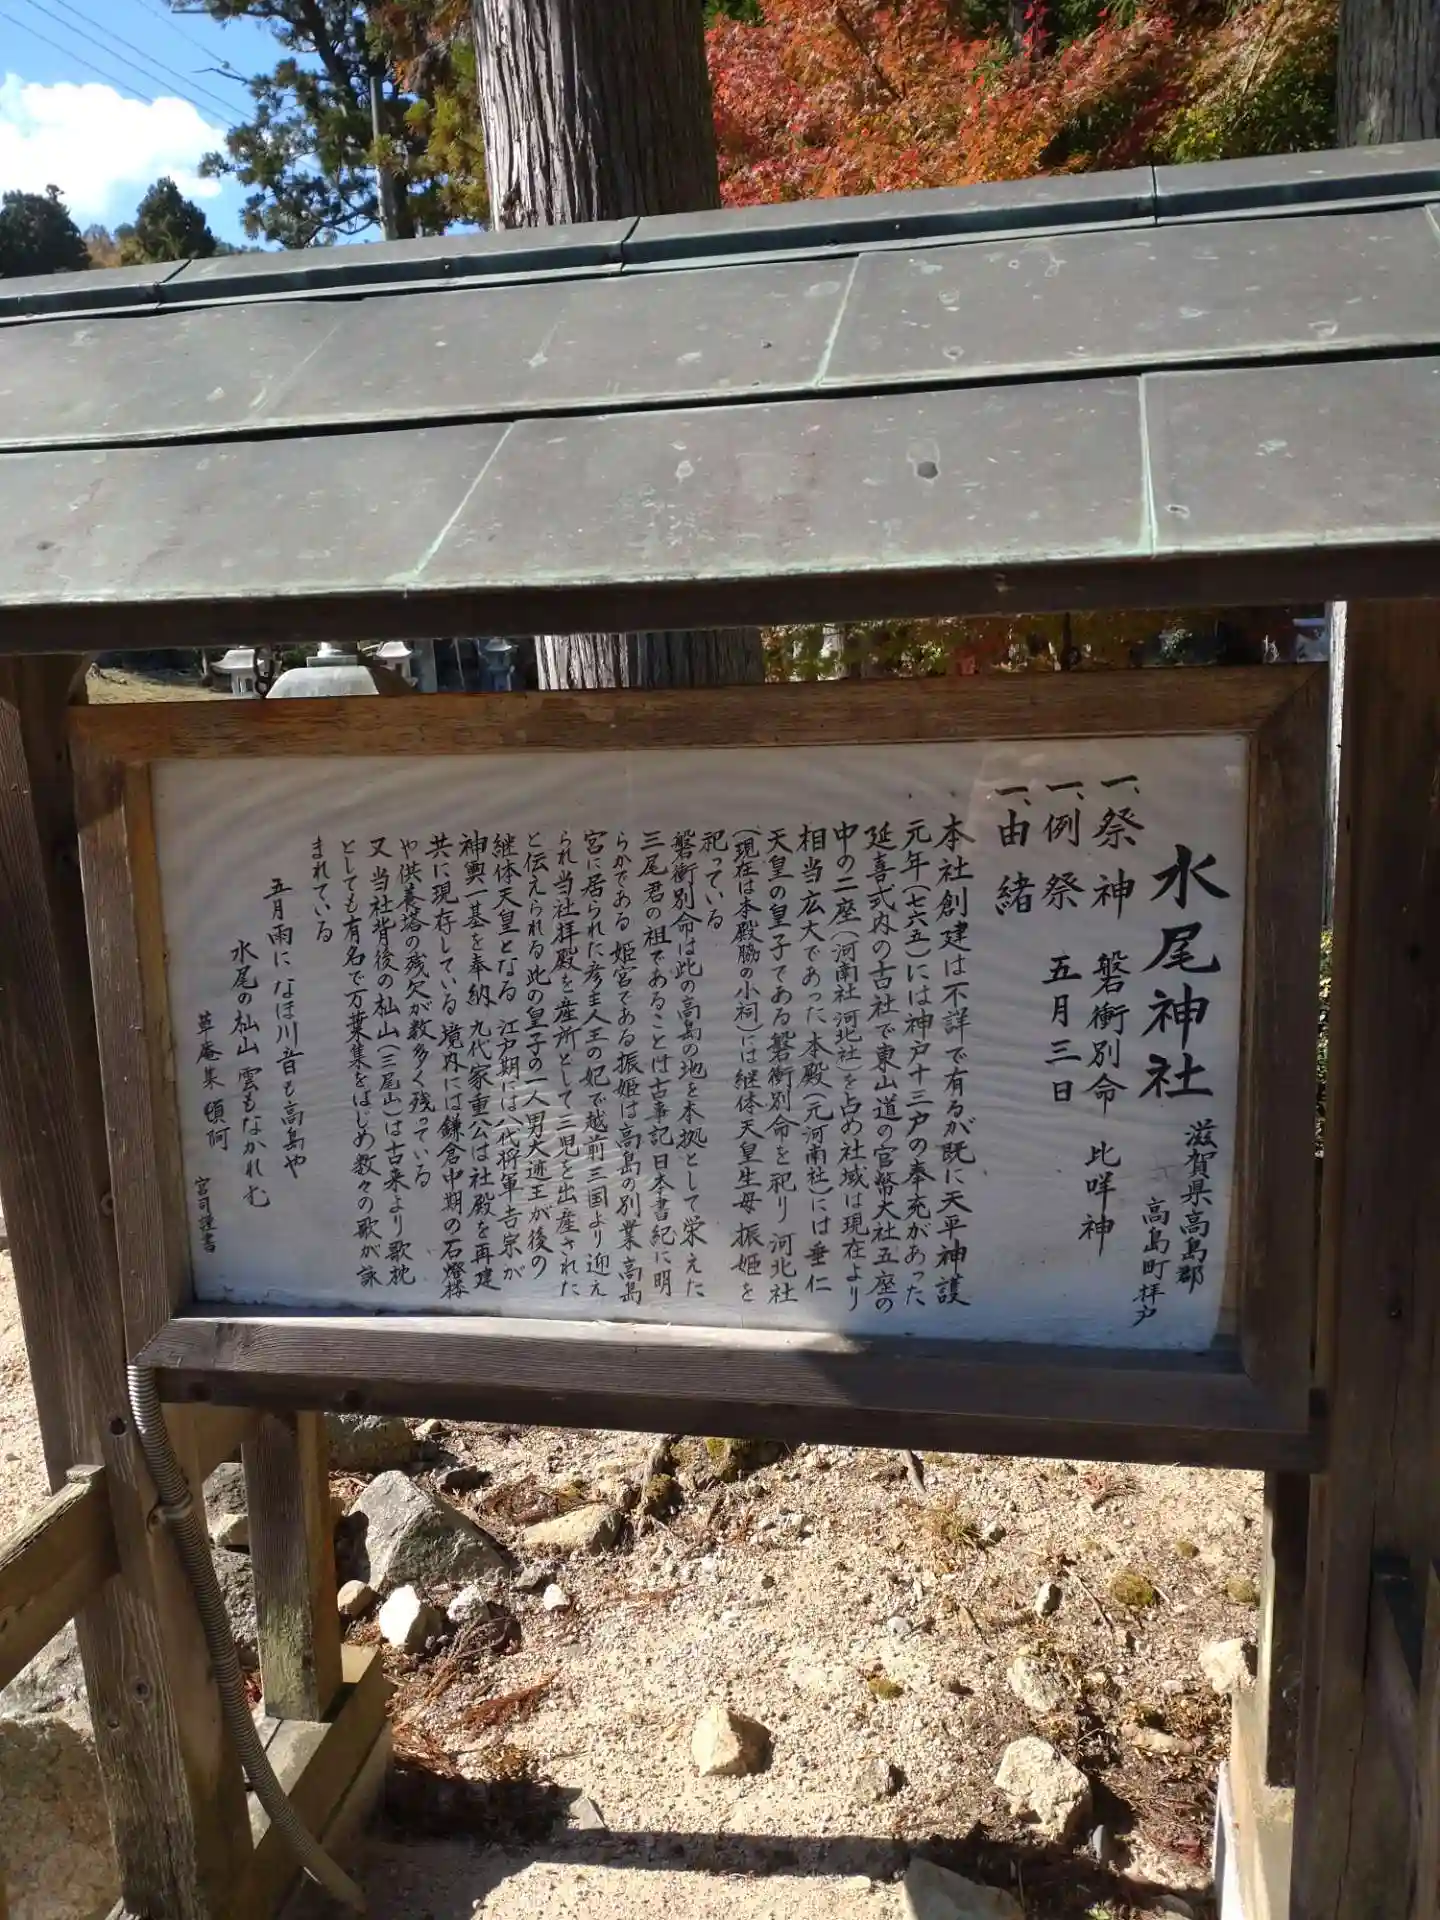 水尾神社
滋賀県高島郡
高島町拝戸
一、祭神 磐衝別命 比咩神
一、例祭 五月三日
一、由緒
本社創建は不詳で有るが既に天平神護
元年(七六五)には神戸十三戸の奉充があった
延喜式内の古社で東山道の官幣大社五座の
中の二座(河南社 河北社)を占め社域は現在より
相当広大であった 本殿(元河南社)には垂仁
天皇の皇子である磐衝別命を祀り 河北社
(現在は本殿脇の小祠)には継体天皇生母 振姫を
祀っている
磐衝別命は此の高島の地を本拠として栄えた
三尾君の祖であることは古事記日本書紀に明
らかである 姫宮である振姫は高島の別業 高島
宮に居られた彦主人王の妃で越前三国より迎え
られ当社拝殿を産所として三児を出産された
と伝えられる此の皇子の一人男大迹王が後の
継体天皇となる 江戸期には八代将軍吉宗が
神輿一基を奉納 九代家重公は社殿を再建
共に現存している 境内には鎌倉中期の石燈楼
や供養塔の残欠が数多く残っている
又 当社背後の杣山(三尾山)は古来より歌枕
としても有名で万葉集をはじめ数々の歌が詠
まれている
五月雨に なほ川音も高島や
水尾の杣山 雲もなかれ む
草庵集 頓阿
宮司謹書